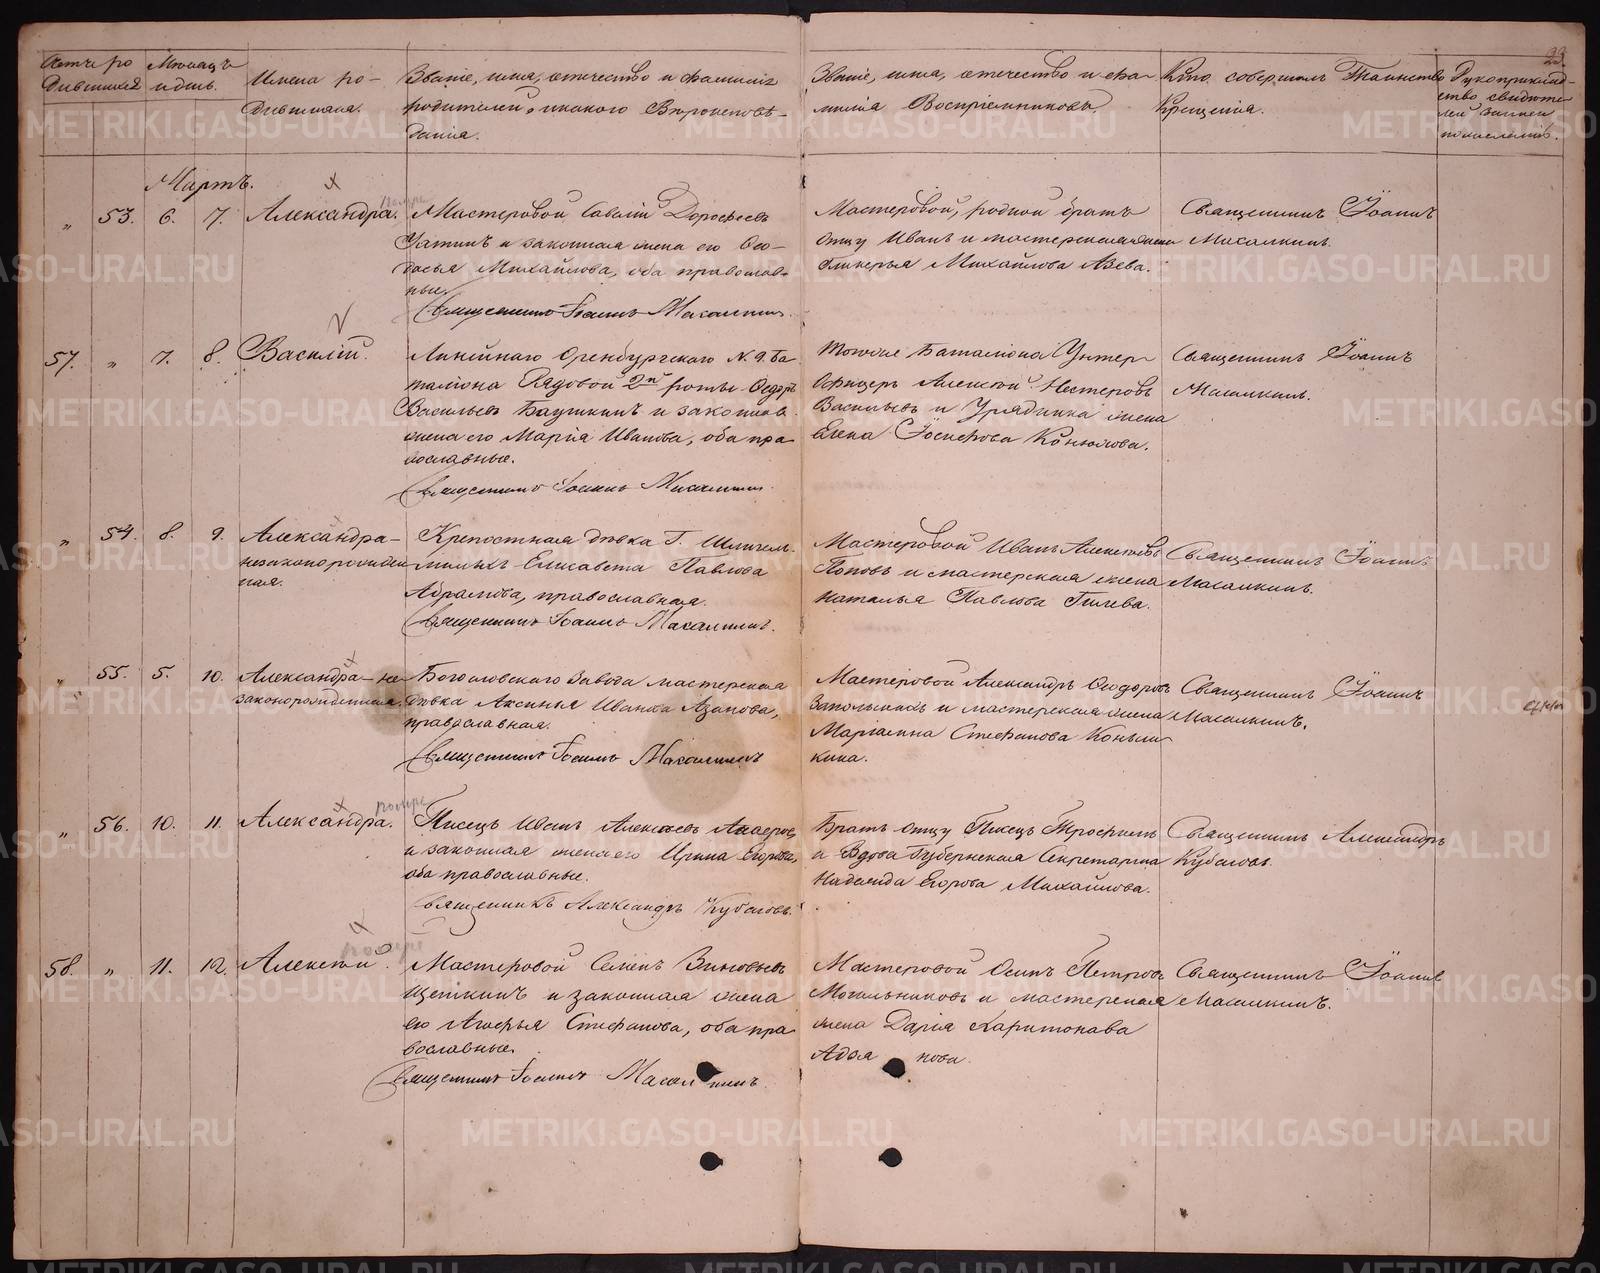 Счетъ ро
дившихся
Мѣсяцъ
и день.
Имена ро-
дившихся.
Званіе, имя, отечество и фамилія
родителей, и какого Вѣроисповѣ-
данія.
Званіе, имя, отечество и фа-
милія Воспріемниковъ.
Кто совершалъ Таинство
Крещенія.
Рукоприклад-
ство свидѣте-
лей записи
по желанію.
Мартъ.
" 53. 6. 7. Александра.
Мастеровой Савалій Дорофеевъ
и законная жена его Ѳео-
досья Михайлова, оба православ-
ные.
Священникъ Іоаннъ Масалкинъ.
Мастеровой, родной братъ
отцу Иванъ и мастерская жена
Гликерья Михайлова Азева.
Священникъ Іоаннъ
Масалкинъ.
57. " 7. 8. Василій.
Линейнаго Оренбургскаго N. 9. Ба
таліона Рядовой 2й роты Ѳедоръ
Васильевъ Баушкинъ и законная
жена его Марія Иванова, оба пра
вославные.
Священникъ Іоаннъ Масалкинъ.
Тогоже Баталіона Унтер-
Офицеръ Алексѣй Нестеровъ
Васильевъ и Урядника жена
Елена Іосифова Конюхова.
Священникъ Іоаннъ
Масалкинъ.
" 54. 8. 9. Александра-
незаконорожден
ная.
Крепостная дѣвка Г.
Елисавета Павлова
Абрамова, православная.
Священникъ Іоаннъ Масалкинъ.
Мастеровой Иванъ Алексѣевъ
Поповъ и мастерская жена
Наталья Павлова Гилева.
Священникъ Іоаннъ
Масалкинъ.
" 55. 5. 10. Александра-не
законорожденная.
Богословскаго Завода мастерская
дѣвка Аксинья Иванова Азанова,
православная.
Священникъ Іоаннъ Масалкинъ
Мастеровой Александръ Ѳедоровъ
и мастерская жена
Маріамна Стефанова Коньши
кина.
Священникъ Іоаннъ
Масалкинъ.
" 56. 10. 11. Александра. помре
Писецъ Иванъ Алексѣевъ
и законная жена его Ирина Егорова,
оба православные.
Священникъ Александръ Кубасовъ.
Братъ отцу Писецъ Трофимъ
и Вдова Губернская Секретарша
Надежда Егорова Михайлова.
Священникъ Александръ
Кубасовъ.
58. " 11. 12. Алексѣй. помре
Мастеровой Семенъ Зиновьевъ
Щепкинъ и законная жена
его Агафья Стефанова, оба пра
вославные.
Священникъ Іоаннъ Масалкинъ.
Мастеровой Осипъ Петровъ
Могильниковъ и мастерская
жена Дарія Харитонова
Адоя нова.
Священникъ Іоаннъ
Масалкинъ.
METRIKI.GASO-URAL.RU